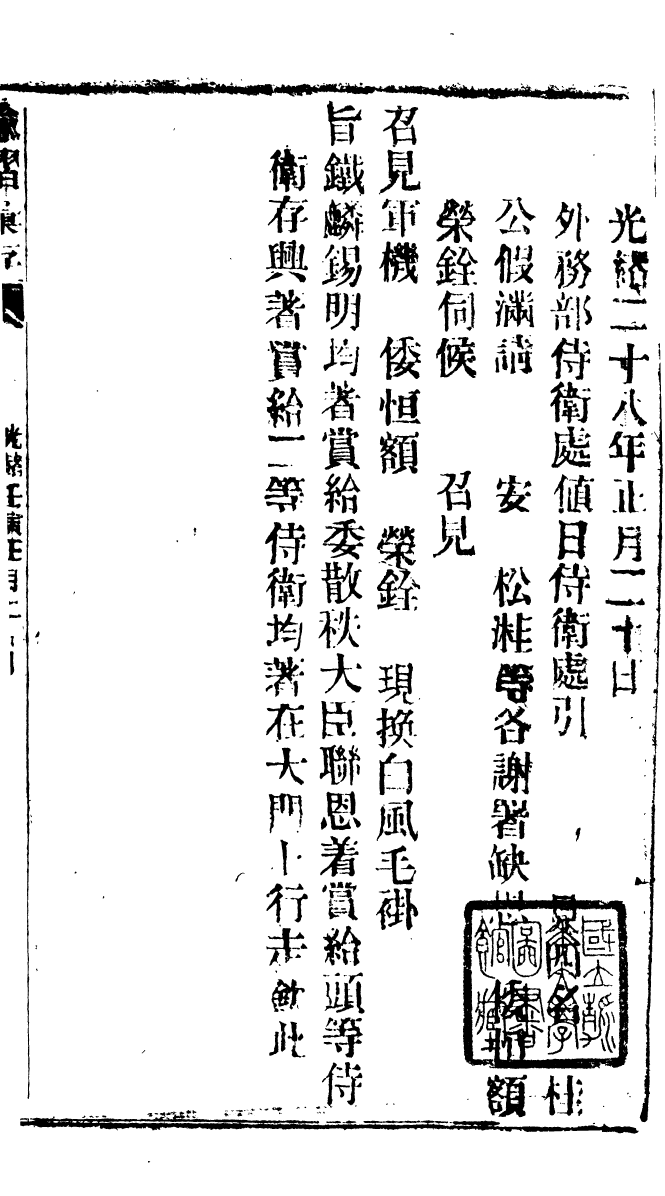 光緒二十八年正月二十日
外務部侍衛處值日侍衛處引 見 名 桂
公假滿請 安 松溎等各謝署缺 倭恒額
榮銓伺候 召見
召見軍機 倭恒額 榮銓 現換白風毛褂
旨鐵麟錫明均著賞給委散秩大臣聯恩着賞給頭等侍
衛存興著賞給二等侍衛均著在大門上行走欽此
諭摺彙存
光緒壬寅正月二
國立 大學圖書館藏